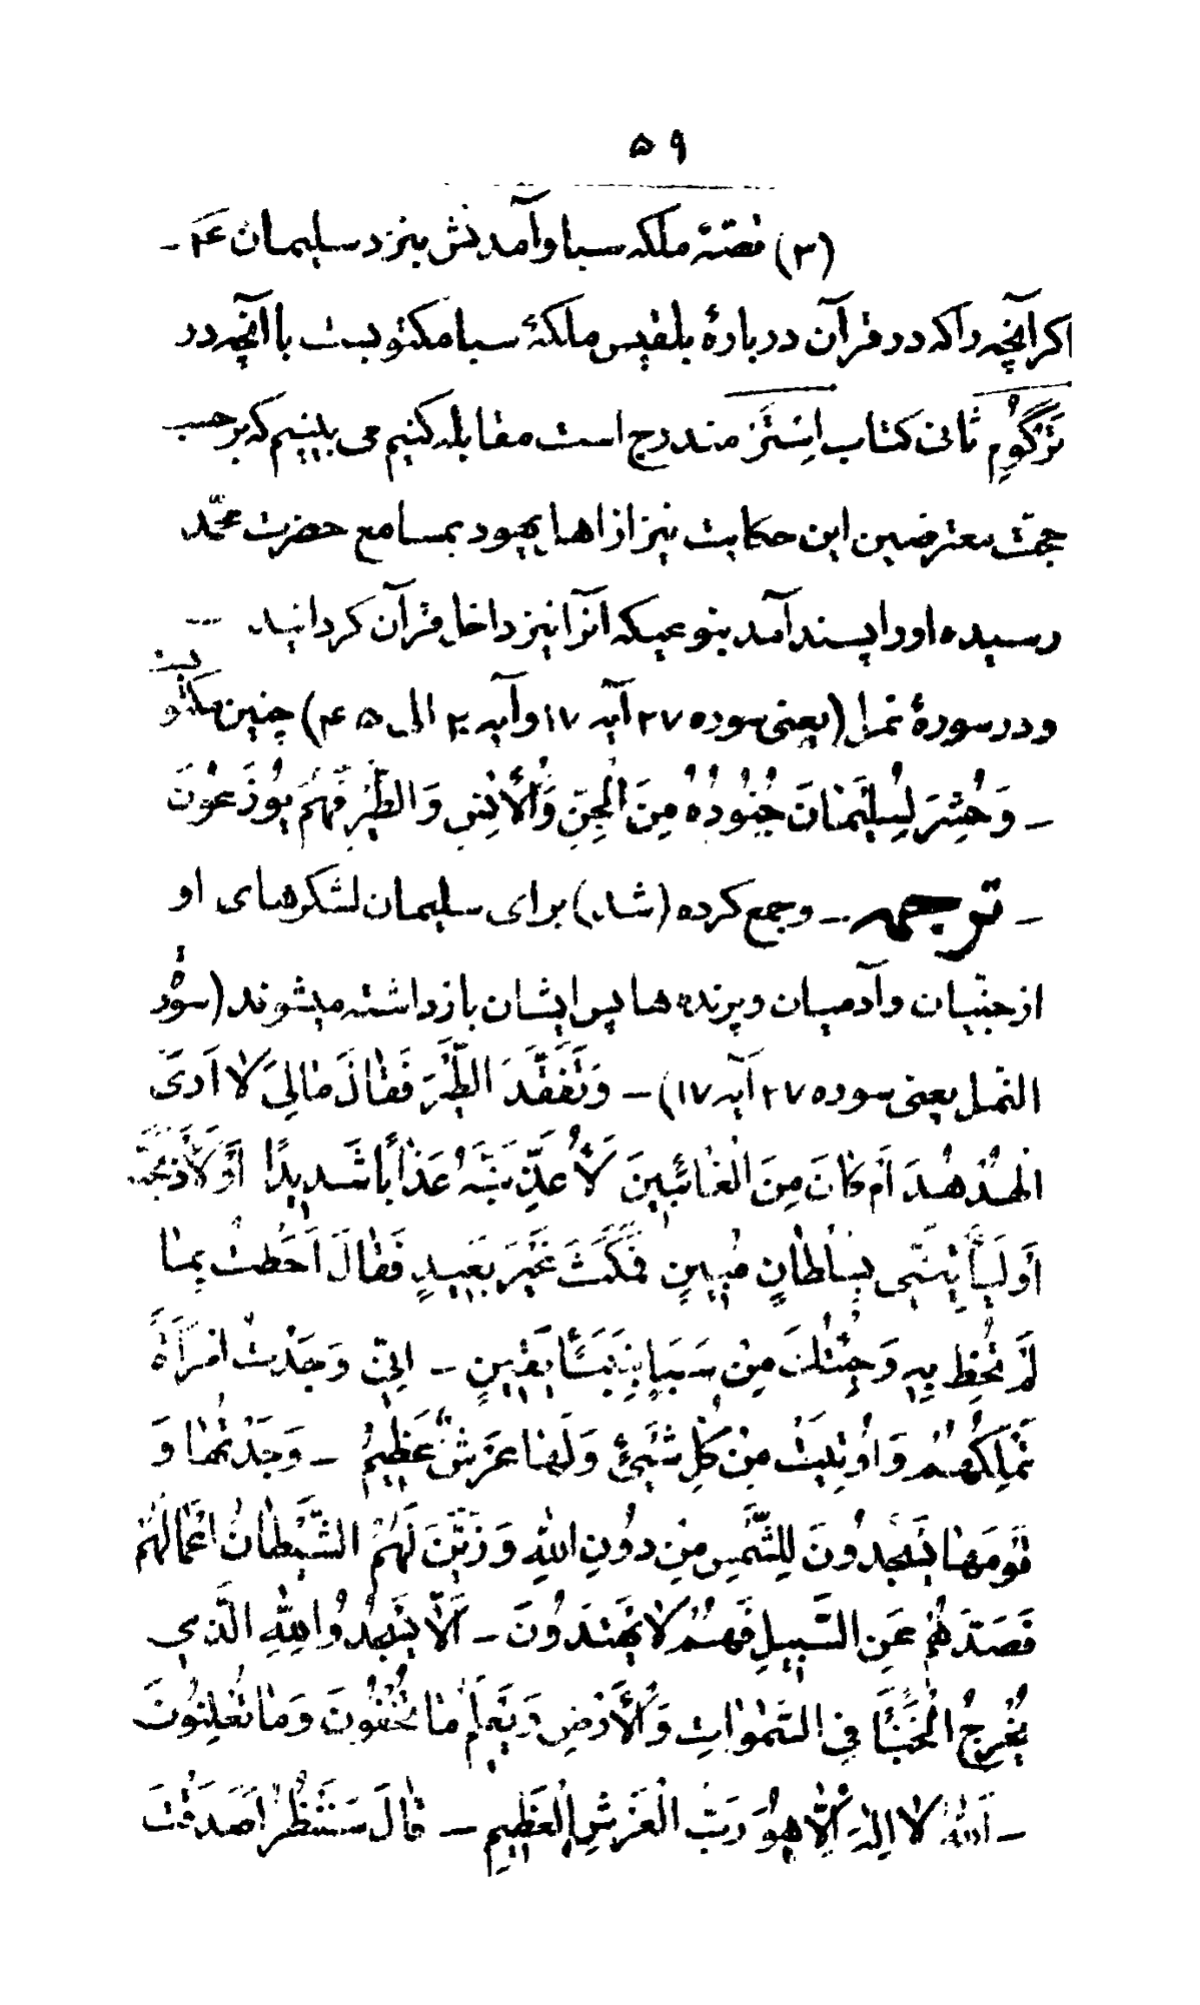 ۵۹
(۳) قصّهٔ ملکه سبا و آمدنش بنزد سلیمان ۴ـ
اکر آنچه را که در قرآن دربارهٔ بلقیس ملکهٔ سبا مکتوبست با آنچه در
تَرْگُومِ ثانی کتاب اِسْتَرْ مندرج است مقابله کنیم می بینیم که برحسب
حجّت معترضین این حکایت نیز از اهل یهود بمسامع حضرت محمّد
رسیده او را پسند آمد بنوعیکه آنرا نیز داخل قرآن کردانید ـ
و در سورهٔ نمل (یعنی سوره ۲۷ آیه ۱۷ و آیه ۲۰ الی ۴۵) چنین مکتوبست
ـ وَحُشِرَ لِسُلَیْمٰانَ جُنُودُهُ مِنَ الْجِنِّ وَالْأَنِسِ وَالطَّیْرِ فَهُمْ یُوزَعُونَ
ـ ترجمه ـ و جمع کرده (شد) برای سلیمان لشکرهای او
از جنّیان و آدمیان و پرنده ها پس ایشان بازداشته میشوند (سورهٔ
النّمل یعنی سوره ۲۷ آیه ۱۷) ـ وَتَفَقَّدَ الطَّیْرَ فَقٰالَ مٰالِیَ لٰا اَرَیٰ
الْهُدْهُدَ اَمْ کٰانَ مِنَ الْغٰائِبِینَ لَأُعَذِّبَنَّهُ عَذٰابًا شَدِیدًا أَوْ لَأَذْبَحَنَّهُ
أَوْ لَیَأْتِیَنِّی بِسُلْطٰانٍ مُبِینٍ فَمَکَثَ غَیْرَ بَعِیدٍ فَقٰالَ اَحَطتُ بِمٰا
لَمْ تُحِطْ بِهِ وَجِئْتُکَ مِنْ سَبَإٍ بِنَبَأٍ یَقِینٍ ـ اِنِّی وَجَدْتُ امْرَأَةً
تَمْلِکُهُمْ وَاُوتِیَتْ مِنْ کُلِّ شَیْئٍ وَلَهٰا عَرْشٌ عَظِیمٌ ـ وَجَدْتُهٰا وَ
قَوْمَهٰا یَسْجُدُونَ لِلشَّمْسِ مِنْ دُونِ اللّٰهِ وَزَیَّنَ لَهُمُ الشَّیْطٰانُ اَعْمٰالَهُمْ
فَصَدَّهُمْ عَنِ السَّبِیلِ فَهُمْ لٰا یَهْتَدُونَ ـ اَلَّا یَسْجُدُوا لِلّٰهِ الَّذِی
یُخْرِجُ الْخَبْأَ فِی السَّمٰوٰاتِ وَالْأَرْضِ وَیَعْلَمُ مٰا تُخْفُونَ وَمٰا تُعْلِنُونَ
ـ اَللّٰهُ لٰا اِلٰهَ اِلَّا هُوَ رَبُّ الْعَرْشِ الْعَظِیمِ ـ قٰالَ سَنَنْظُرُ اَصَدَقْتَ